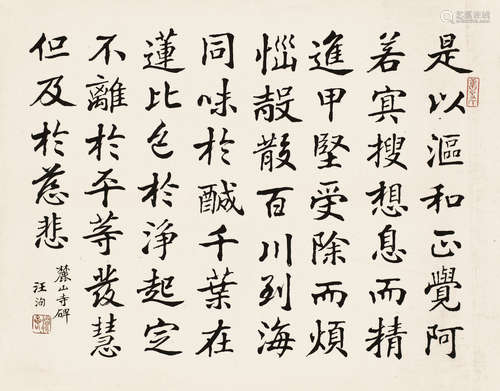 是以漚和正覺阿
若㝠搜想息而精
進甲堅受除而煩
惱殼散百川到海
同味於醎千葉在
蓮比色於淨起定
不離於平等發慧
但及於慈悲
麓山寺碑
汪洵